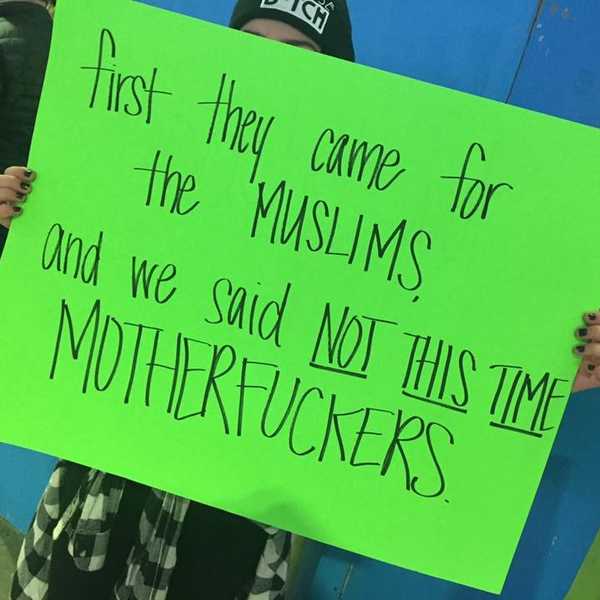 B*TCH
first they came for
the MUSLIMS,
and we said NOT THIS TIME
MOTHERFUCKERS.